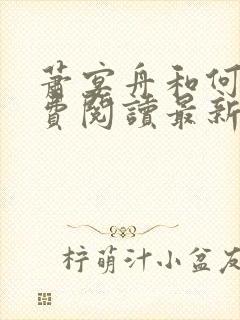 蕭宴舟和何
費閱讀最新
梓萌汁小盆友